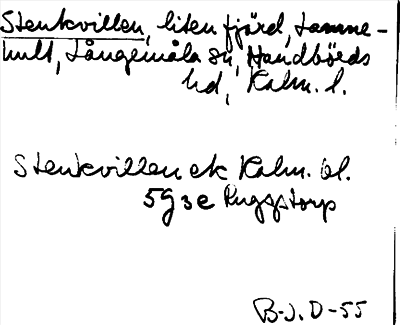 Stenkvillen, liten fjärd, Lamme-
hult, Långemåla sn, Handbörds
hd, Kalm. l.
Stenkvillen ek Kalm. bl.
5G3e Ruggstorp
B-J. D-55